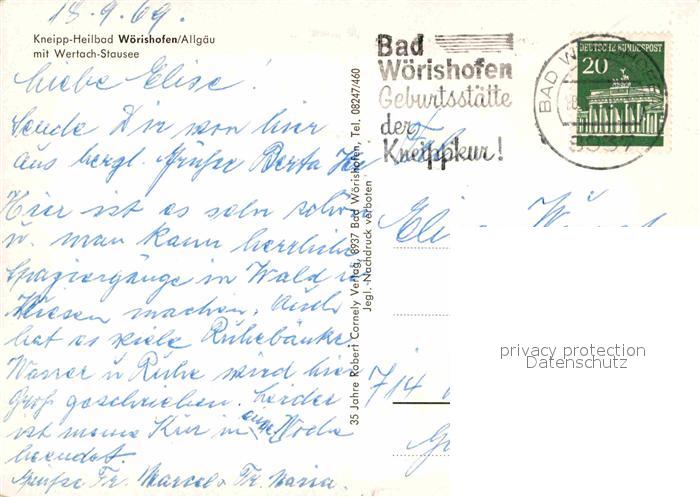 18.9.69.
Kneipp-Heilbad Wörishofen/Allgäu
mit Wertach-Stausee
Liebe Elise!
Sende Dir von hier
aus herzl. Grüße Berta
Hier ist es sehr schön
u. man kann herrliche
Spaziergänge in Wald u
Wiesen machen. Auch
hat es viele Ruhebänke.
Wasser u Ruhe wird hier
Groß geschrieben. Leider
ist meine Kur in einer Woche
beendet.
Grüße Fr. Marcel u Fr. Maria.
35 Jahre Robert Cornely Verlag, 8937 Bad Wörishofen, Tel. 08247/460
Jegl. Nachdruck verboten
Bad
Wörishofen
Geburtsstätte
der
Kneippkur!
BAD WÖRISHOFEN
8937
DEUTSCHE BUNDESPOST
20
714
privacy protection
Datenschutz